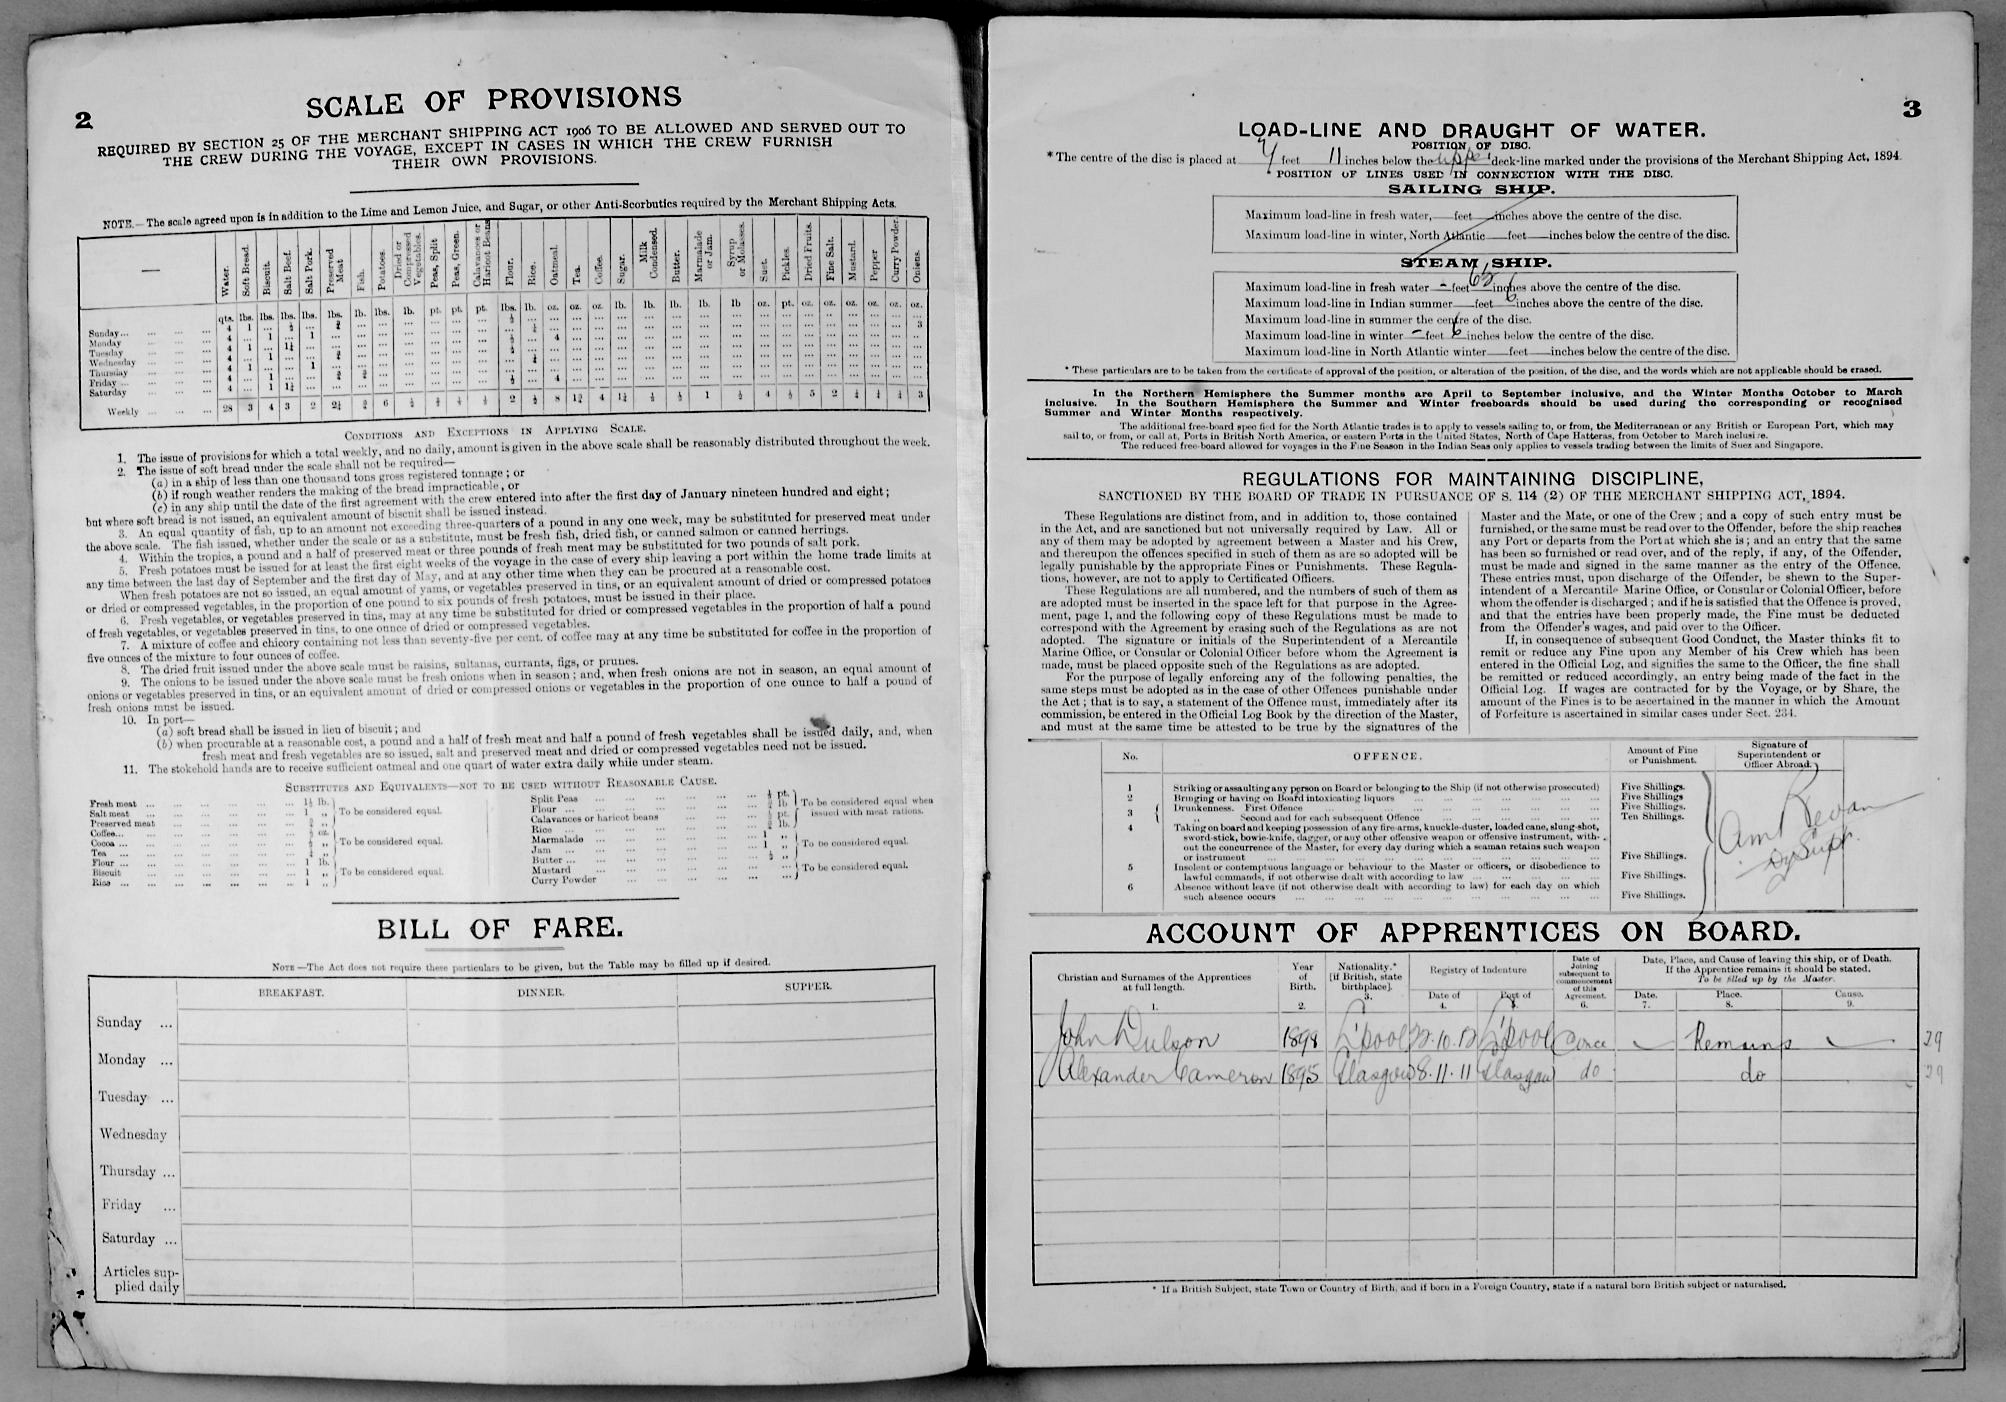 2
SCALE OF PROVISIONS
REQUIRED BY SECTION 25 OF THE MERCHANT SHIPPING ACT 1906 TO BE ALLOWED AND SERVED OUT TO
THE CREW DURING THE VOYAGE, EXCEPT IN CASES IN WHICH THE CREW FURNISH
THEIR OWN PROVISIONS.
NOTE.—The scale agreed upon is in addition to the Lime and Lemon Juice, and Sugar, or other Anti-Scorbutics required by the Merchant Shipping Acts.
— Water. Soft Bread. Biscuit. Salt Beef. Salt Pork. Preserved Meat Fish. Potatoes. Dried or Compressed Vegetables. Peas, Split Peas, Green. Calavances or Haricot Beans Flour. Rice. Oatmeal. Tea. Coffee. Sugar. Milk Condensed. Butter. Marmalade or Jam. Syrup or Molasses. Suet. Pickles. Dried Fruits. Fine Salt. Mustard. Pepper Curry Powder. Onions.
qts. lbs. lbs. lbs. lbs. lbs. lb. lbs. lb. pt. pt. pt. lbs. lb. oz. oz. oz. lb. lb. lb. lb. lb oz. pt. oz. oz. oz. oz. oz. oz.
Sunday
Monday
Tuesday
Wednesday
Thursday
Friday
Saturday
Weekly 28 3 4 3 2 2¼ ¾ 6 ½ 2 ½ 8 1¾ 4 1¼ 1 ½ 4 ½ 5 2 ¼ ¼ ¼ 3
CONDITIONS AND EXCEPTIONS IN APPLYING SCALE.
1. The issue of provisions for which a total weekly, and no daily, amount is given in the above scale shall be reasonably distributed throughout the week.
2. The issue of soft bread under the scale shall not be required—
(a) in a ship of less than one thousand tons gross registered tonnage; or
(b) if rough weather renders the making of the bread impracticable, or
(c) in any ship until the date of the first agreement with the crew entered into after the first day of January nineteen hundred and eight;
but where soft bread is not issued, an equivalent amount of biscuit shall be issued instead.
3. An equal quantity of fish, up to an amount not exceeding three-quarters of a pound in any one week, may be substituted for preserved meat under
the above scale. The fish issued, whether under the scale or as a substitute, must be fresh fish, dried fish, or canned salmon or canned herrings.
4. Within the tropics, a pound and a half of preserved meat or three pounds of fresh meat may be substituted for two pounds of salt pork.
5. Fresh potatoes must be issued for at least the first eight weeks of the voyage in the case of every ship leaving a port within the home trade limits at
any time between the last day of September and the first day of May, and at any other time when they can be procured at a reasonable cost.
When fresh potatoes are not so issued, an equal amount of yams, or vegetables preserved in tins, or an equivalent amount of dried or compressed potatoes
or dried or compressed vegetables, in the proportion of one pound to six pounds of fresh potatoes, must be issued in their place.
6. Fresh vegetables, or vegetables preserved in tins, may at any time be substituted for dried or compressed vegetables in the proportion of half a pound
of fresh vegetables, or vegetables preserved in tins, to one ounce of dried or compressed vegetables.
7. A mixture of coffee and chicory containing not less than seventy-five per cent. of coffee may at any time be substituted for coffee in the proportion of
five ounces of the mixture to four ounces of coffee.
8. The dried fruit issued under the above scale must be raisins, sultanas, currants, figs, or prunes.
9. The onions to be issued under the above scale must be fresh onions when in season; and, when fresh onions are not in season, an equal amount of
onions or vegetables preserved in tins, or an equivalent amount of dried or compressed onions or vegetables in the proportion of one ounce to half a pound of
fresh onions must be issued.
10. In port—
(a) soft bread shall be issued in lieu of biscuit; and
(b) when procurable at a reasonable cost, a pound and a half of fresh meat and half a pound of fresh vegetables shall be issued daily, and, when
fresh meat and fresh vegetables are so issued, salt and preserved meat and dried or compressed vegetables need not be issued.
11. The stokehold hands are to receive sufficient oatmeal and one quart of water extra daily while under steam.
SUBSTITUTES AND EQUIVALENTS—NOT TO BE USED WITHOUT REASONABLE CAUSE.
Fresh meat 1½ lb.
Salt meat 1 „ To be considered equal.
Preserved meat ¾ „
Coffee ½ oz.
Cocoa ½ „ To be considered equal.
Tea ¼ „
Flour 1 lb.
Biscuit 1 „ To be considered equal.
Rice 1 „
Split Peas
Flour To be considered equal when
Calavances or haricot beans issued with meat rations.
Rice
Marmalade 1 „
Jam 1 „ To be considered equal.
Butter ½ „
Mustard
Curry Powder To be considered equal.
BILL OF FARE.
NOTE—The Act does not require these particulars to be given, but the Table may be filled up if desired.
BREAKFAST. DINNER. SUPPER.
Sunday ...
Monday ...
Tuesday ...
Wednesday
Thursday ...
Friday ...
Saturday ...
Articles sup-
plied daily
3
LOAD-LINE AND DRAUGHT OF WATER.
POSITION OF DISC.
* The centre of the disc is placed at feet 11 inches below the upper deck-line marked under the provisions of the Merchant Shipping Act, 1894.
POSITION OF LINES USED IN CONNECTION WITH THE DISC.
SAILING SHIP.
Maximum load-line in fresh water,—feet—inches above the centre of the disc.
Maximum load-line in winter, North Atlantic—feet—inches below the centre of the disc.
STEAM SHIP.
Maximum load-line in fresh water - feet 6½ inches above the centre of the disc.
Maximum load-line in Indian summer—feet 6 inches above the centre of the disc.
Maximum load-line in summer the centre of the disc.
Maximum load-line in winter - feet 6 inches below the centre of the disc.
Maximum load-line in North Atlantic winter—feet—inches below the centre of the disc.
* These particulars are to be taken from the certificate of approval of the position, or alteration of the position, of the disc, and the words which are not applicable should be erased.
In the Northern Hemisphere the Summer months are April to September inclusive, and the Winter Months October to March
inclusive. In the Southern Hemisphere the Summer and Winter freeboards should be used during the corresponding or recognised
Summer and Winter Months respectively.
The additional free-board specified for the North Atlantic trades is to apply to vessels sailing to, or from, the Mediterranean or any British or European Port, which may
sail to, or from, or call at, Ports in British North America, or eastern Ports in the United States, North of Cape Hatteras, from October to March inclusive.
The reduced free-board allowed for voyages in the Fine Season in the Indian Seas only applies to vessels trading between the limits of Suez and Singapore.
REGULATIONS FOR MAINTAINING DISCIPLINE,
SANCTIONED BY THE BOARD OF TRADE IN PURSUANCE OF S. 114 (2) OF THE MERCHANT SHIPPING ACT, 1894.
These Regulations are distinct from, and in addition to, those contained
in the Act, and are sanctioned but not universally required by Law. All or
any of them may be adopted by agreement between a Master and his Crew,
and thereupon the offences specified in such of them as are so adopted will be
legally punishable by the appropriate Fines or Punishments. These Regula-
tions, however, are not to apply to Certificated Officers.
These Regulations are all numbered, and the numbers of such of them as
are adopted must be inserted in the space left for that purpose in the Agree-
ment, page 1, and the following copy of these Regulations must be made to
correspond with the Agreement by erasing such of the Regulations as are not
adopted. The signature or initials of the Superintendent of a Mercantile
Marine Office, or Consular or Colonial Officer before whom the Agreement is
made, must be placed opposite such of the Regulations as are adopted.
For the purpose of legally enforcing any of the following penalties, the
same steps must be adopted as in the case of other Offences punishable under
the Act; that is to say, a statement of the Offence must, immediately after its
commission, be entered in the Official Log Book by the direction of the Master,
and must at the same time be attested to be true by the signatures of the
Master and the Mate, or one of the Crew; and a copy of such entry must be
furnished, or the same must be read over to the Offender, before the ship reaches
any Port or departs from the Port at which she is; and an entry that the same
has been so furnished or read over, and of the reply, if any, of the Offender,
must be made and signed in the same manner as the entry of the Offence.
These entries must, upon discharge of the Offender, be shewn to the Super-
intendent of a Mercantile Marine Office, or Consular or Colonial Officer, before
whom the offender is discharged; and if he is satisfied that the Offence is proved,
and that the entries have been properly made, the Fine must be deducted
from the Offender's wages, and paid over to the Officer.
If, in consequence of subsequent Good Conduct, the Master thinks fit to
remit or reduce any Fine upon any Member of his Crew which has been
entered in the Official Log, and signifies the same to the Officer, the fine shall
be remitted or reduced accordingly, an entry being made of the fact in the
Official Log. If wages are contracted for by the Voyage, or by Share, the
amount of the Fines is to be ascertained in the manner in which the Amount
of Forfeiture is ascertained in similar cases under Sect. 234.
No. OFFENCE. Amount of Fine or Punishment. Signature of Superintendent or Officer Abroad.
1 Striking or assaulting any person on Board or belonging to the Ship (if not otherwise prosecuted) Five Shillings.
2 Bringing or having on Board intoxicating liquors Five Shillings
3 Drunkenness. First Offence Five Shillings.
„ Second and for each subsequent Offence Ten Shillings.
4 Taking on board and keeping possession of any fire-arms, knuckle-duster, loaded cane, slung-shot,
sword-stick, bowie-knife, dagger, or any other offensive weapon or offensive instrument, with-
out the concurrence of the Master, for every day during which a seaman retains such weapon
or instrument Five Shillings.
5 Insolent or contemptuous language or behaviour to the Master or officers, or disobedience to
lawful commands, if not otherwise dealt with according to law Five Shillings.
6 Absence without leave (if not otherwise dealt with according to law) for each day on which
such absence occurs Five Shillings.
Bevan
Dy Supt.
ACCOUNT OF APPRENTICES ON BOARD.
Christian and Surnames of the Apprentices at full length. Year of Birth. Nationality.* [if British, state birthplace]. Registry of Indenture Date of Joining subsequent to commencement of this Agreement. Date, Place, and Cause of leaving this ship, or of Death. If the Apprentice remains it should be stated. To be filled up by the Master.
Date of Port of Date. Place. Cause.
1. 2. 3. 4. 5. 6. 7. 8. 9.
John Dulson 1898 L'pool L'pool Once Remains 29
Alexander Cameron 1895 Glasgow 8.11.11 Glasgow do do 29
* If a British Subject, state Town or Country of Birth, and if born in a Foreign Country, state if a natural born British subject or naturalised.